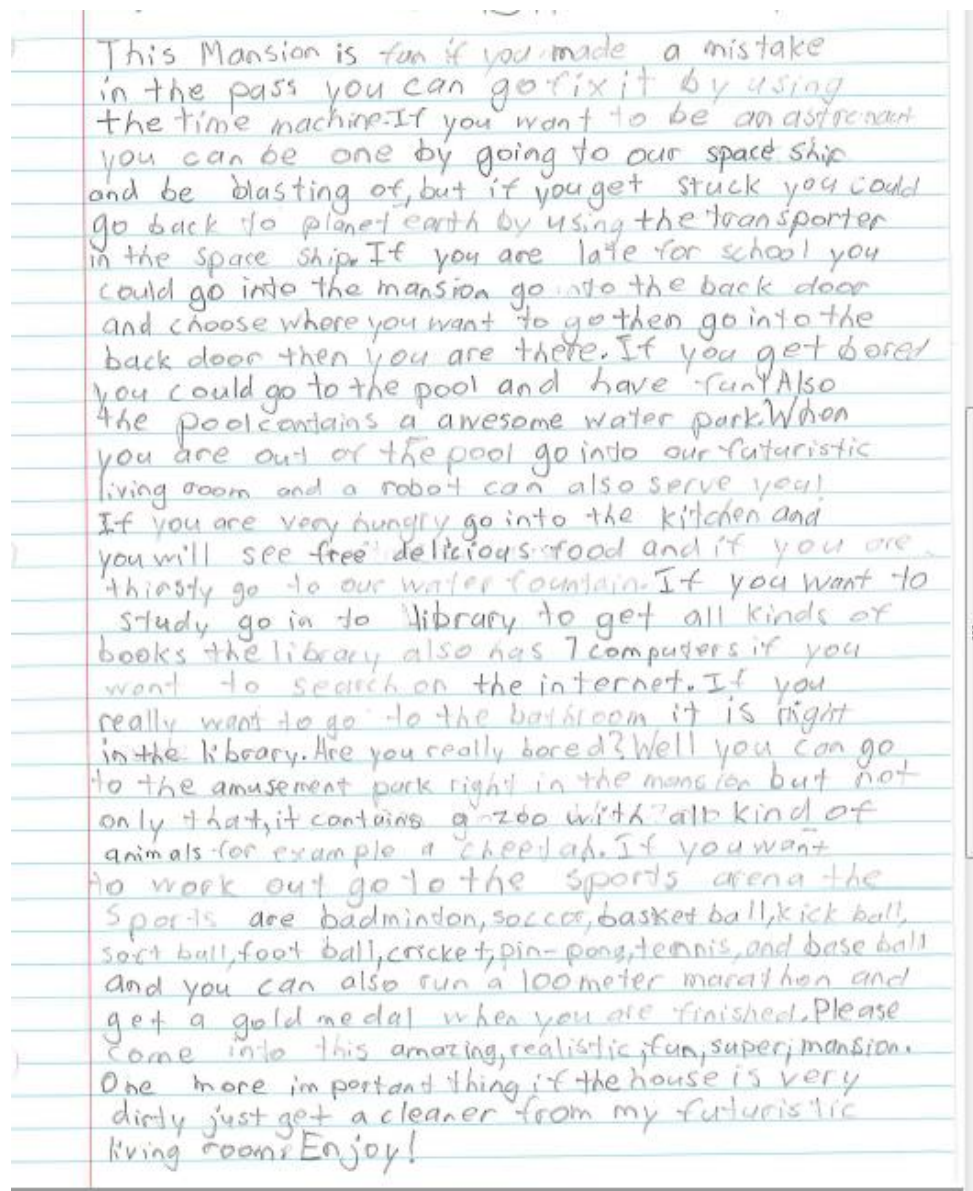 This Mansion is fun if you made a mistake
in the pass you can go fix it by using
the time machine.If you want to be an astronaut
you can be one by going to our space ship
and be blasting of, but if you get stuck you could
go back to planet earth by using the transporter
in the space ship. If you are late for school you
could go into the mansion go into the back door
and choose where you want to go then go into the
back door then you are there. If you get bored
you could go to the pool and have fun! Also
the pool contains a awesome water park.When
you are out of the pool go into our futuristic
living room and a robot can also serve you!
If you are very hungry go into the kitchen and
you will see free delicious food and if you are
thirsty go to our water fountain. If you want to
study go in to library to get all kinds of
books the library also has 7 computers if you
want to search on the internet. If you
really want to go to the bathroom it is right
in the library. Are you really bored? Well you can go
to the amusement park right in the mansion but not
only that, it contains a zoo with all kind of
animals for example a cheetah. If you want
to work out go to the sports arena the
sports are badminton, soccer, basket ball, kick ball,
soft ball, foot ball, cricket, pin-pong, tennis, and base ball
and you can also run a 100 meter marathon and
get a gold medal when you are finished. Please
come into this amazing, realistic, fun, super, mansion.
One more im portant thing if the house is very
dirty just get a cleaner from my futuristic
living room. Enjoy!